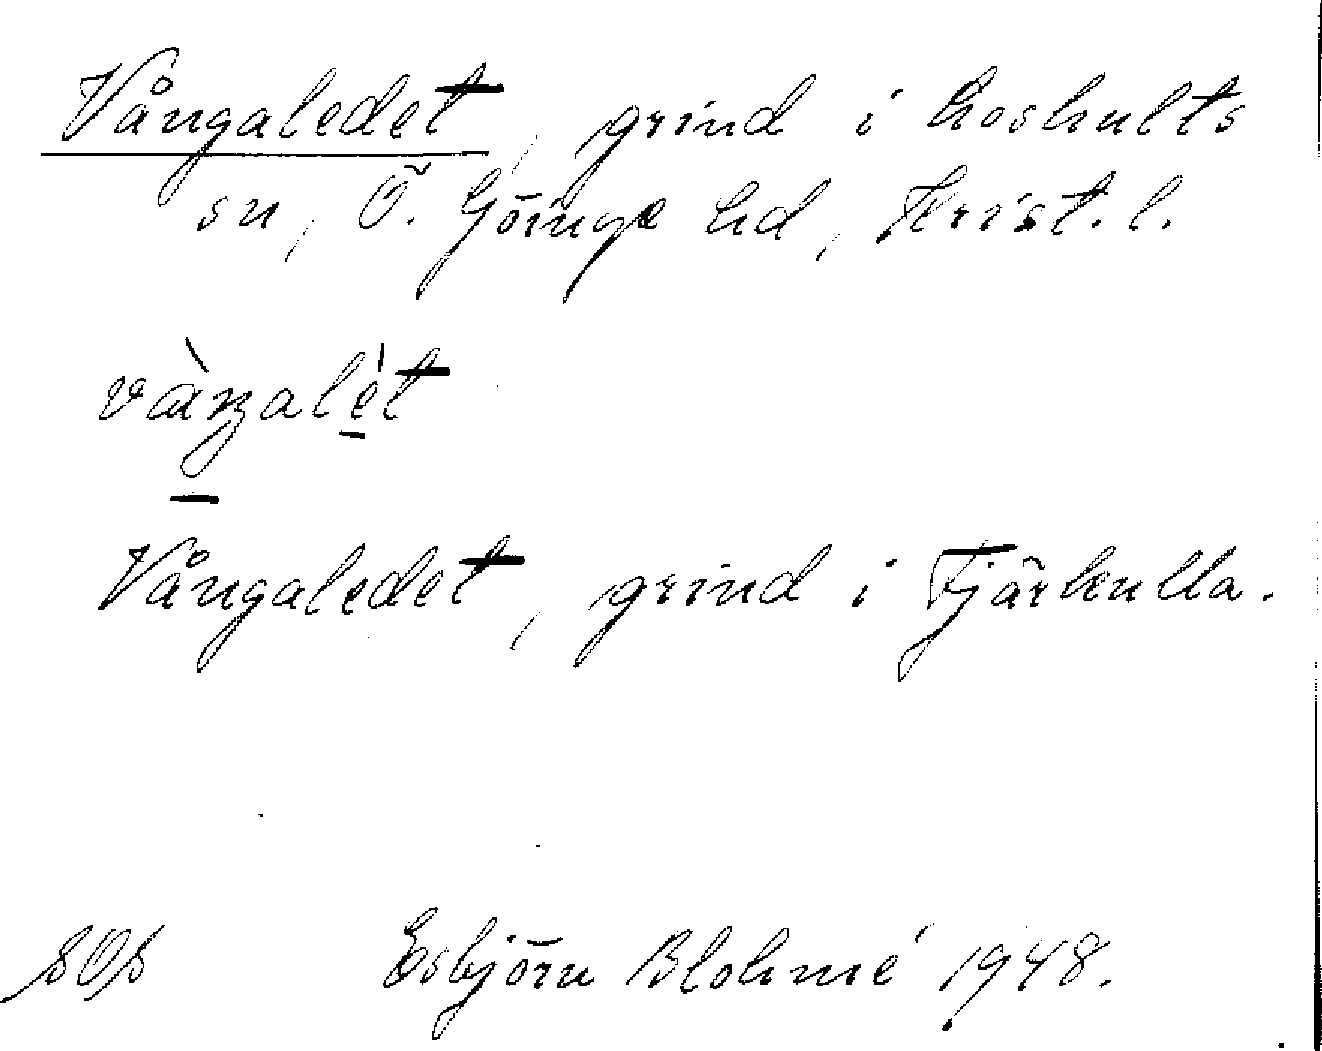 Vångaledet, grind i Loshults
sn, Ö. Göinge hd, Krist. l.
Vångaledet, grind i Fjärkulla.
Esbjörn Blohmé 1948.